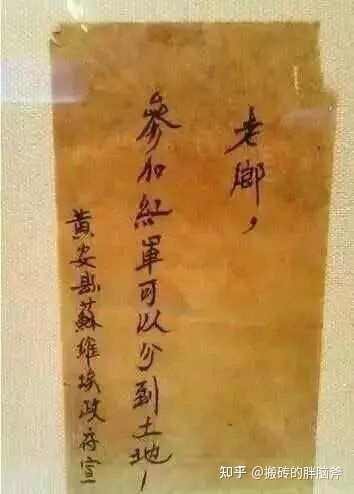 老鄉，
參加紅軍可以分到土地！
黃安縣蘇維埃政府宣
知乎 @搬砖的胖脑斧